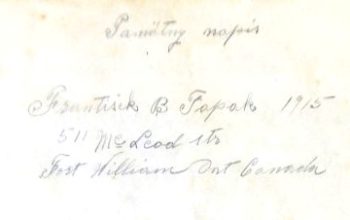 Pamätny napis
Frantisik B Tapak 1915
511 McLeod str
Fort William Ont Canada